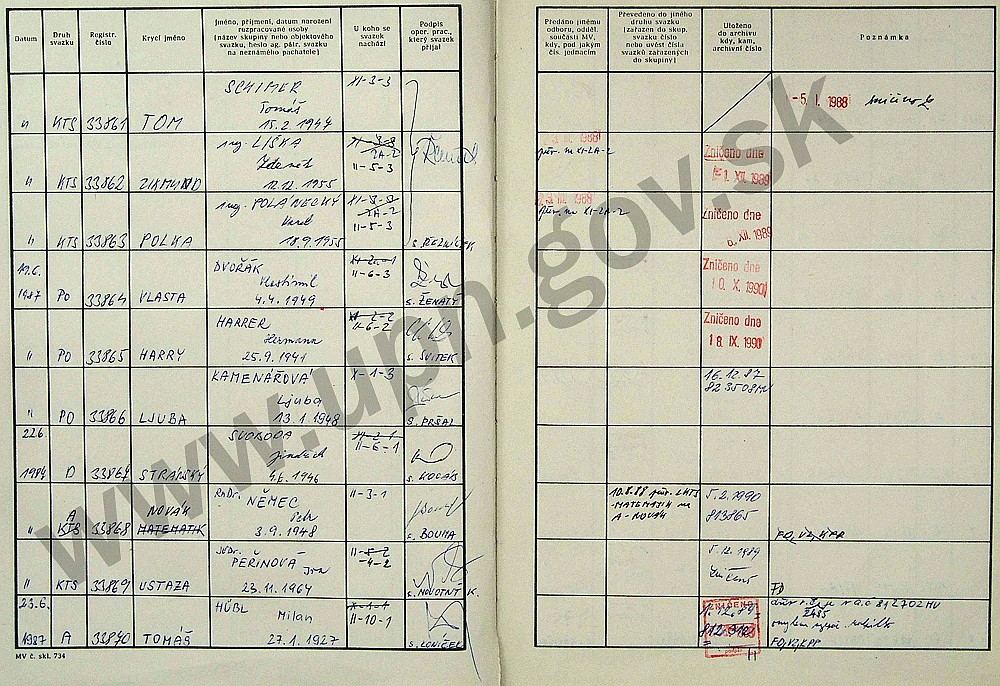 Datum
Druh svazku
Registr. číslo
Krycí jméno
Jméno, příjmení, datum narození rozpracované osoby (název skupiny nebo objektového svazku, heslo ag. pátr. svazku na neznámého pachatele)
U koho se svazek nachází
Podpis oper. prac., který svazek přijal
Předáno jinému odboru, odděl. součásti MV, kdy, pod jakým čís. jednacím
Převedeno do jiného druhu svazku (zařazen do skup. svazku číslo nebo uvést čísla svazků zařazených do skupiny)
Uloženo do archivu kdy, kam, archivní číslo
Poznámka
" KTS 33861 TOM
SCHIMER
Tomáš
15.2.1947
XI-3-3
-5. I. 1988
zničeno
" KTS 33862 ZIKMUND
ing. LIŠKA
Zdeněk
12.12.1955
XI-3-3
2A-2
II-5-3
1988
Zničeno dne
1. XII. 1989
" KTS 33863 POLKA
ing. POLANECKÝ
18.9.1955
XI-3-3
2A-2
II-5-3
1988
Zničeno dne
6. XII. 1989
19.6.
1987 PO 33864 VLASTA
DVOŘÁK
Vlastimil
4.4.1949
II-6-3
s. ŽENATÝ
Zničeno dne
10. X. 1990
" PO 33865 HARRY
HARRER
Hermann
25.9.1941
II-6-2
s. SVITEK
Zničeno dne
18. IX. 1990
" PO 33866 LJUBA
KAMENÁŘOVÁ
Ljuba
13.1.1948
X-1-3
s. PRŠAL
16.12.87
823508MV
22.6.
1987 D 33867 STRANSKÝ
SVOBODA
Jindřich
4.6.1946
II-6-1
s. KOCÁB
" A
KTS 33868
NOVÁK
MATEMATIK
RNDr. NĚMEC
Petr
3.9.1948
II-3-1
s. BOUMA
MATEMATIK na
A - NOVÁK
5.2.1990
813865
" KTS 33869 USTAZA
JUDr. PEŘINOVÁ
Iva
23.11.1964
II-5-2
-4-2
s. NOVOTNÝ K.
5.12.1989
Zničeno
23.6.
1987 A 33870 TOMÁŠ
HÜBL
Milan
27.1.1927
X-1-1
II-10-1
s. LONÍČEK
ZNIČENO
812702MV
omylem
MV č. skl. 734
www.upn.gov.sk